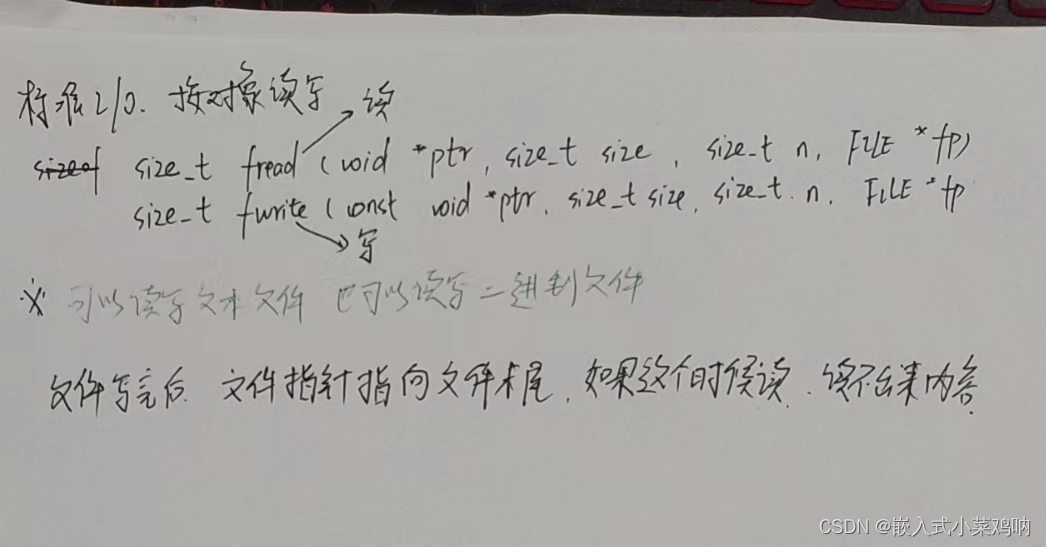 标准I/O. 按对象读写 读
sizeof size_t fread (void *ptr, size_t size, size_t n, FILE *fp)
size_t fwrite (const void *ptr, size_t size, size_t n, FILE *fp
写
※ 可以读写文本文件 也可以读写二进制文件
文件写完后 文件指针指向文件末尾, 如果这个时候读, 读不出来内容
CSDN @嵌入式小菜鸡呐